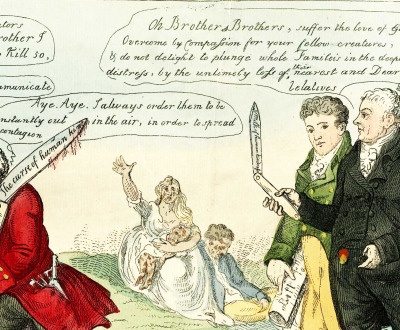 ctors
rother I
Kill 50,
mmunicate
Oh Brothers Brothers, suffer the love of G
Overcome by Compassion for your fellow-creatures,
& do not delight to plunge whole Families in the deep
distress, by the untimely loss of, their nearest and Dear
relatives
Aye. Aye. I always order them to be
nstantly out in the air, in order to spread
contagion
The curse of human ki